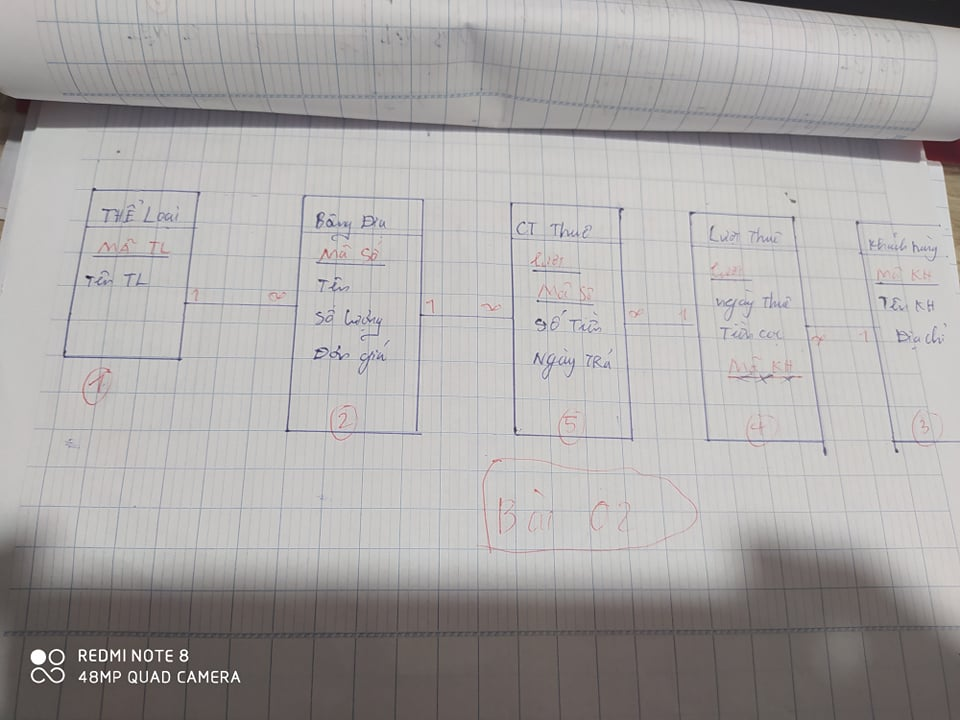 THỂ Loại
Mã TL
Tên TL
1
∞
①
Băng Đĩa
Mã Số
Tên
Số lượng
Đơn giá
1
∞
②
CT Thuê
Lượt
Mã Số
Số Tiền
Ngày Trả
∞
1
⑤
Lượt Thuê
Lượt
ngày Thuê
Tiền cọc
Mã KH
∞
1
④
Khách hàng
Mã KH
Tên KH
Địa chỉ
③
Bài 02
REDMI NOTE 8
48MP QUAD CAMERA